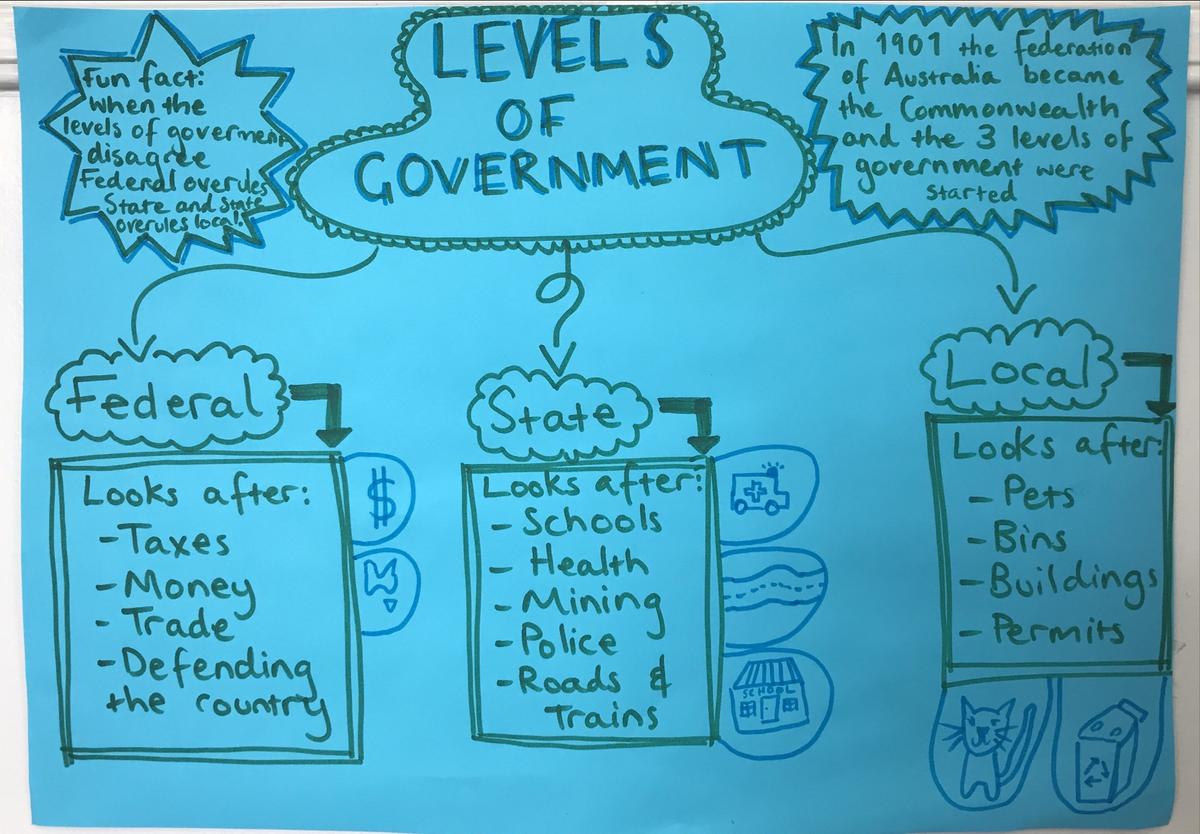 LEVELS
OF
GOVERNMENT
Fun fact:
when the
levels of goverment
disagree
Federal overules
State and state
overules local!
In 1901 the federation
of Australia became
the Commonwealth
and the 3 levels of
government were
started
Federal
Looks after:
-Taxes
-Money
-Trade
-Defending
the country
$
State
Looks after:
- Schools
- Health
- Mining
-Police
-Roads &
Trains
SCHOOL
Local
Looks after:
- Pets
- Bins
-Buildings
- Permits